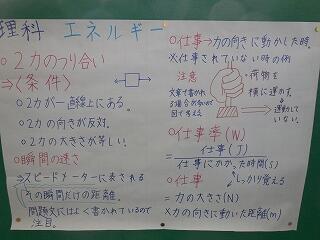 理科 エネルギー
○2力のつり合い
⇒〈条件〉
○2力が一直線上にある。
○2力の向きが反対。
○2力の大きさが等しい。
○瞬間の速さ
⇒スピードメーターに表される
その瞬間だけの距離。
問題文にはよく書かれているので
注目。
○仕事→力の向きに動かした時。
※仕事されていない時の例
注意
文章で書かれ
る場合が多いので
図で考える
荷物を
横に運ぶ。
運動して
いない。
○仕事率(W)
=仕事(J)
仕事にかかった時間(S)
○仕事
しっかり覚える
=力の大きさ(N)
×力の向きに動いた距離(m)